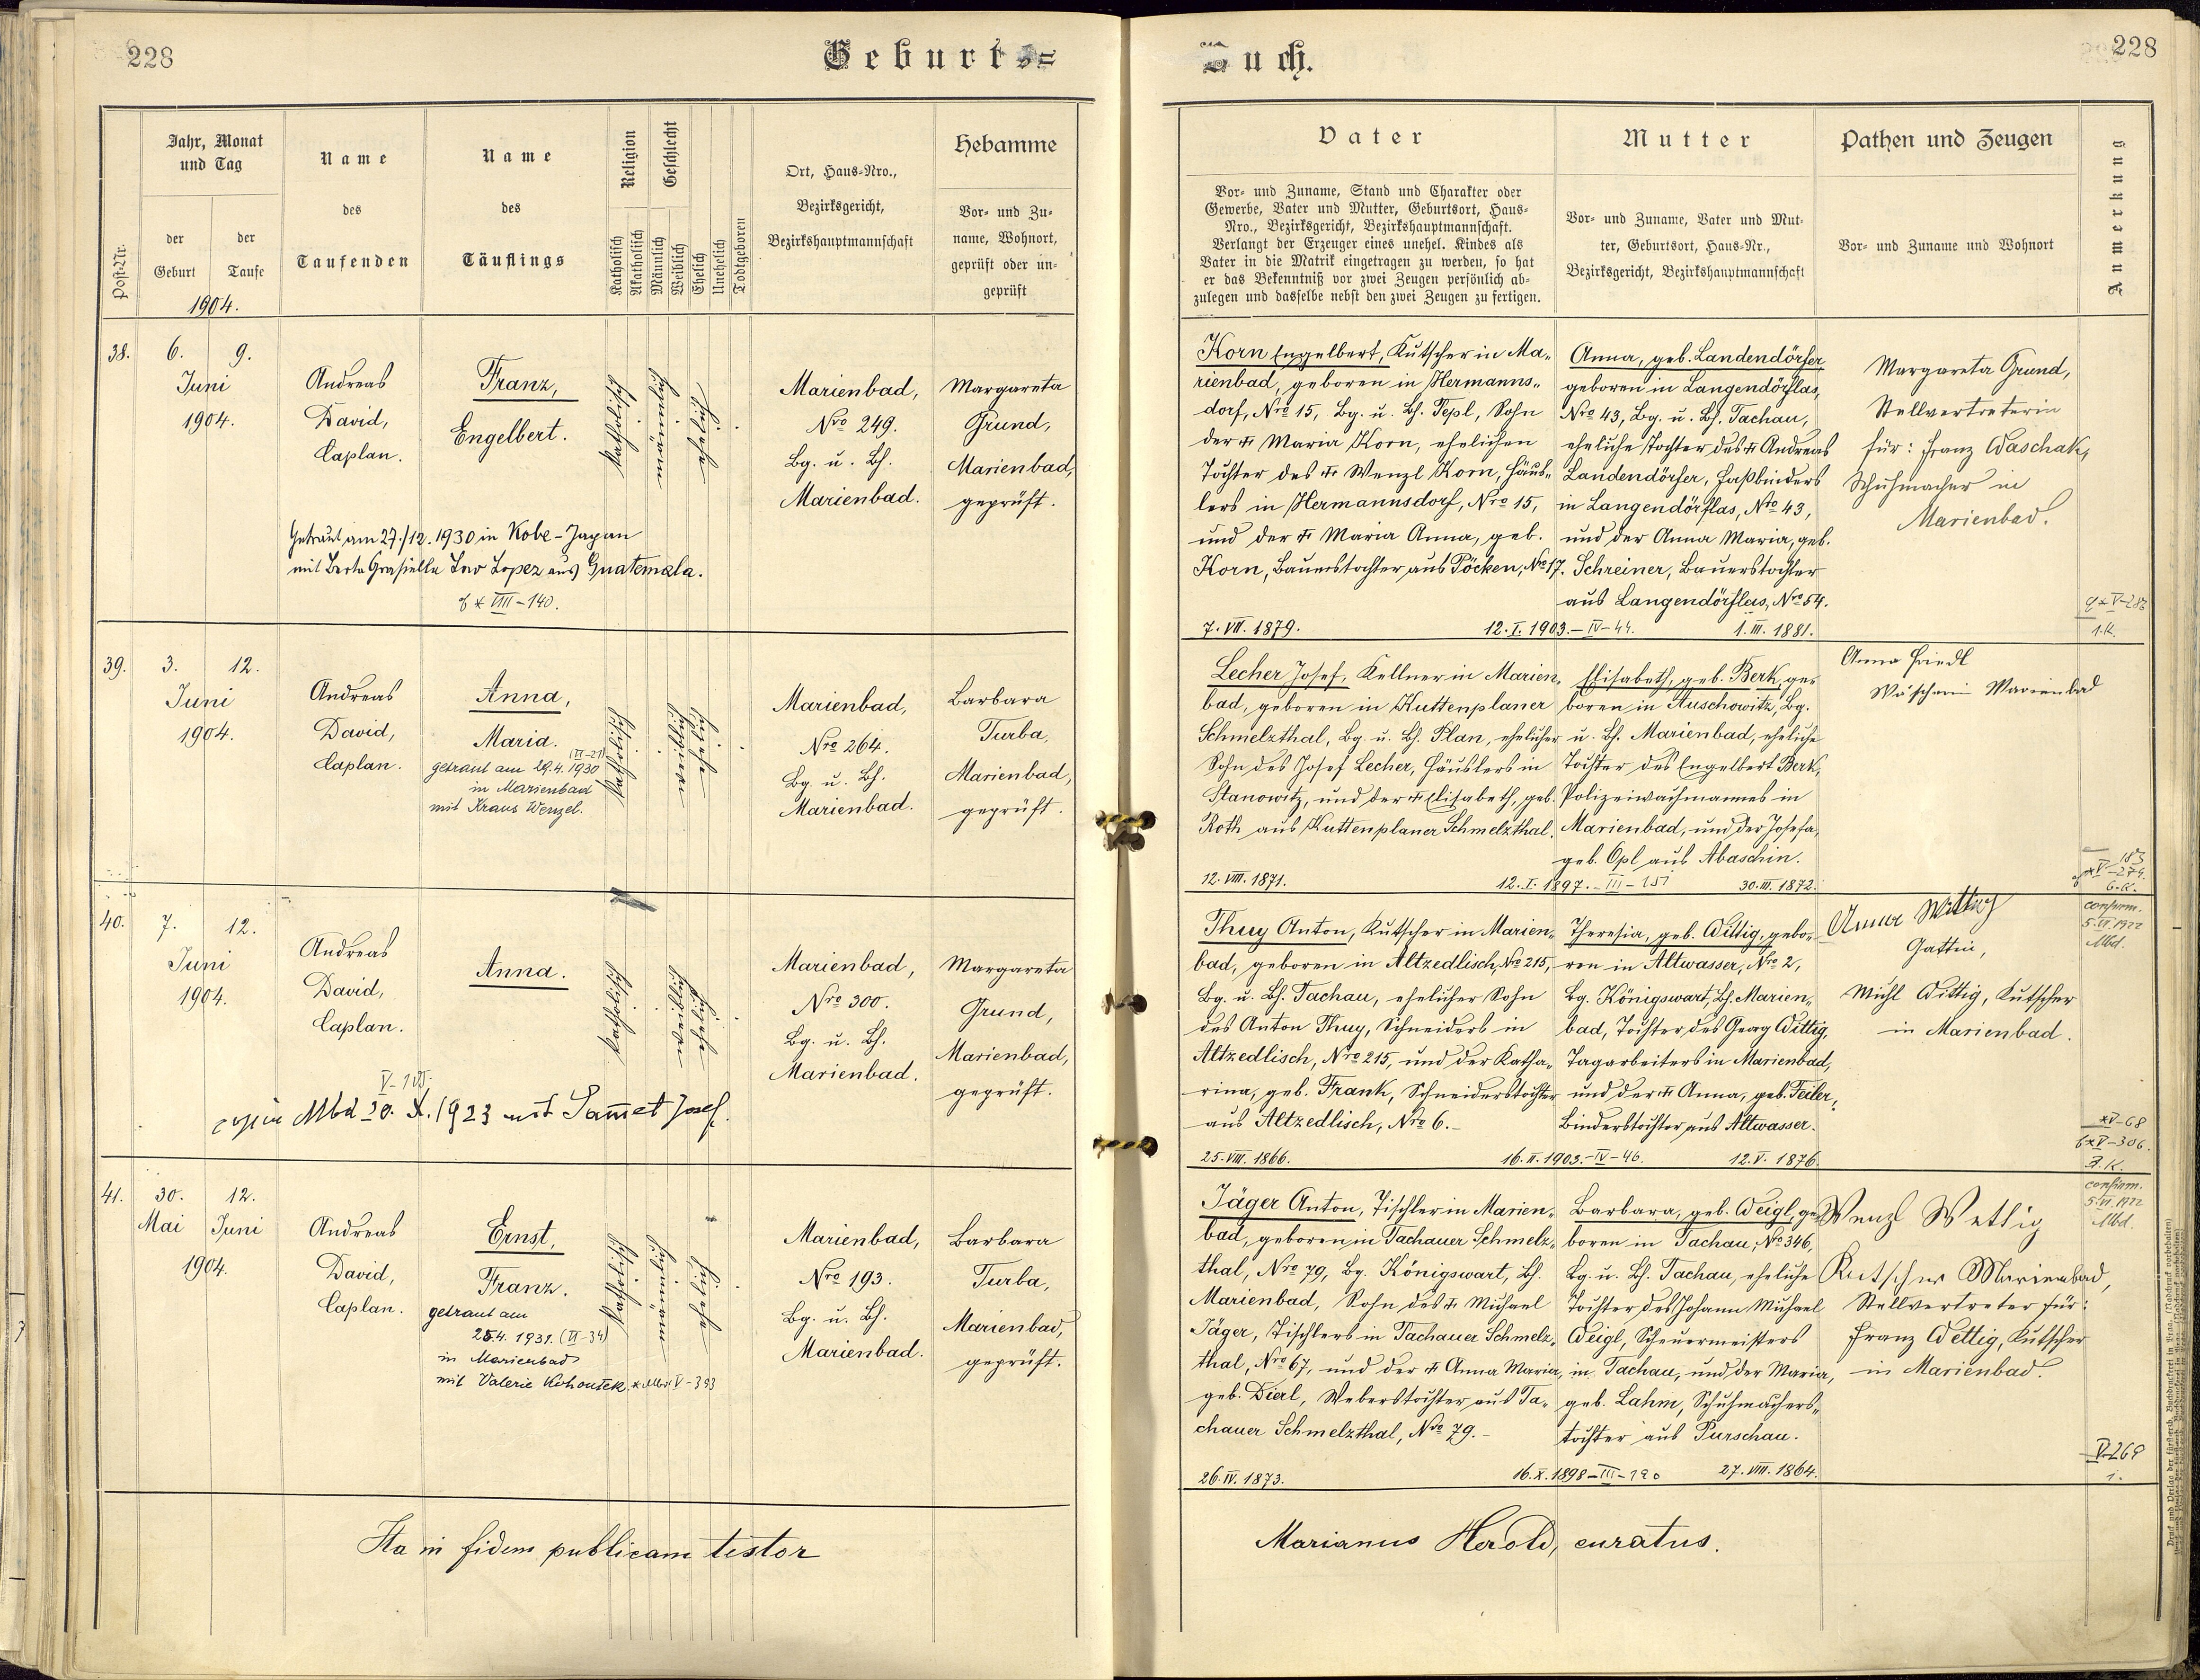 228
Geburts=
Buch.
228
Post-Nr.
Jahr, Monat
und Tag
der
Geburt
der
Taufe
1904.
Name
des
Taufenden
Name
des
Täuflings
Religion
Katholisch
Akatholisch
Geschlecht
Männlich
Weiblich
Ehelich
Unehelich
Todtgeboren
Ort, Haus-Nro.,
Bezirksgericht,
Bezirkshauptmannschaft
Hebamme
Vor- und Zu-
name, Wohnort,
geprüft oder un-
geprüft
Vater
Vor- und Zuname, Stand und Charakter oder
Gewerbe, Vater und Mutter, Geburtsort, Haus-
Nro., Bezirksgericht, Bezirkshauptmannschaft.
Verlangt der Erzeuger eines unehel. Kindes als
Vater in die Matrik eingetragen zu werden, so hat
er das Bekenntniß vor zwei Zeugen persönlich ab-
zulegen und dasselbe nebst den zwei Zeugen zu fertigen.
Mutter
Vor- und Zuname, Vater und Mut-
ter, Geburtsort, Haus-Nr.,
Bezirksgericht, Bezirkshauptmannschaft
Pathen und Zeugen
Vor- und Zuname und Wohnort
Anmerkung
38.
6. 9.
Juni
1904.
Andreas
David,
Caplan.
Franz,
Engelbert.
katholisch
männlich
ehelich
Marienbad,
Nro 249.
Bg. u. Bh.
Marienbad.
Margareta
Grund,
Marienbad,
geprüft.
Getraut am 27./12. 1930 in Kobe-Japan
mit Berta Grasiella Lopez aus Guatemala.
VIII-140.
Korn Engelbert, Kutscher in Ma-
rienbad, geboren in Hermanns-
dorf, Nro 15, Bg. u. Bh. Tepl, Sohn
der † Maria Korn, ehelichen
Tochter des † Wenzl Korn, Häus-
lers in Hermannsdorf, Nro 15,
und der † Maria Anna, geb.
Korn, Bauerstochter aus Pöcken, No 17.
7. VII. 1879.
12. I. 1903. - IV-44.
Anna, geb. Landendörfer,
geboren in Langendörflas,
Nro 43, Bg. u. Bh. Tachau,
eheliche Tochter des † Andreas
Landendörfer, Faßbinders
in Langendörflas, Nro 43,
und der Anna Maria, geb.
Schreiner, Bauerstochter
aus Langendörflas, Nro 54.
1. III. 1881.
Margareta Grund,
Stellvertreterin
für: Franz Waschak,
Schuhmacher in
Marienbad.
1. K.
39.
3. 12.
Juni
1904.
Andreas
David,
Caplan.
Anna,
Maria.
(VI-21)
getraut am 29.4. 1930
in Marienbad
mit Kraus Wenzel.
katholisch
weiblich
ehelich
Marienbad,
Nro 264.
Bg. u. Bh.
Marienbad.
Barbara
Turba,
Marienbad,
geprüft.
Lecher Josef, Kellner in Marien-
bad, geboren in Kuttenplaner
Schmelzthal, Bg. u. Bh. Plan, ehelicher
Sohn des Josef Lecher, Häuslers in
Stanowitz, und der † Elisabeth, geb.
Roth aus Kuttenplaner Schmelzthal.
12. VIII. 1871.
12. I. 1897. - III-151
Elisabeth, geb. Berk, ge-
boren in Auschowitz, Bg.
u. Bh. Marienbad, eheliche
Tochter des Engelbert Berk,
Polizeiwachmannes in
Marienbad, und der Josefa,
geb. Opl aus Abaschin.
30. III. 1872.
Anna Friedl
Wäscherin Marienbad
6. K.
40.
7. 12.
Juni
1904.
Andreas
David,
Caplan.
Anna.
katholisch
weiblich
ehelich
Marienbad,
Nro 300.
Bg. u. Bh.
Marienbad.
Margareta
Grund,
Marienbad,
geprüft.
Mbd 20. X. 1923 mit Sam̅et Josef.
Thuy Anton, Kutscher in Marien-
bad, geboren in Altzedlisch, Nro 215,
Bg. u. Bh. Tachau, ehelicher Sohn
des Anton Thuy, Schneiders in
Altzedlisch, Nro 215, und der Katha-
rina, geb. Frank, Schneiderstochter
aus Altzedlisch, Nro 6. -
25. VIII. 1866.
16. II. 1903. - IV-46.
Theresia, geb. Wittig, gebo-
ren in Altwasser, Nro 2,
Bg. Königswart, Bh. Marien-
bad, Tochter des Georg Wittig,
Tagarbeiters in Marienbad,
und der † Anna, geb. Feiler,
Binderstochter aus Altwasser.
12. V. 1876.
Anna Wittig
Gattin,
Michl Wittig, Kutscher
in Marienbad.
confirm.
5. VI. 1922
Mbd.
V-68
V-306.
7. K.
41.
30. 12.
Mai Juni
1904.
Andreas
David,
Caplan.
Ernst,
Franz.
getraut am
25.4. 1931. (VI-34)
in Marienbad
mit Valerie Kohoutek. * Mbd V-393
katholisch
männlich
ehelich
Marienbad,
Nro 193.
Bg. u. Bh.
Marienbad.
Barbara
Turba,
Marienbad,
geprüft.
Jäger Anton, Tischler in Marien-
bad, geboren in Tachauer Schmelz-
thal, Nro 79, Bg. Königswart, Bh.
Marienbad, Sohn des † Michael
Jäger, Tischlers in Tachauer Schmelz-
thal, Nro 67, und der † Anna Maria,
geb. Dierl, Weberstochter aus Ta-
chauer Schmelzthal, Nro 79. -
26. IV. 1873.
16. X. 1898 - III-190
Barbara, geb. Weigl, ge-
boren in Tachau, No 346,
Bg. u. Bh. Tachau, eheliche
Tochter des Johann Michael
Weigl, Scheuermeisters
in Tachau, und der Maria,
geb. Lahm, Schuhmachers-
tochter aus Purschau.
27. VIII. 1864.
Wenzl Wettig
Kutscher Marienbad,
Stellvertreter für:
Franz Wettig, Kutscher
in Marienbad.
confirm.
5. VI. 1922
Mbd.
V-269
1.
Ita in fidem publicam testor
Marianus Herold, curatus.